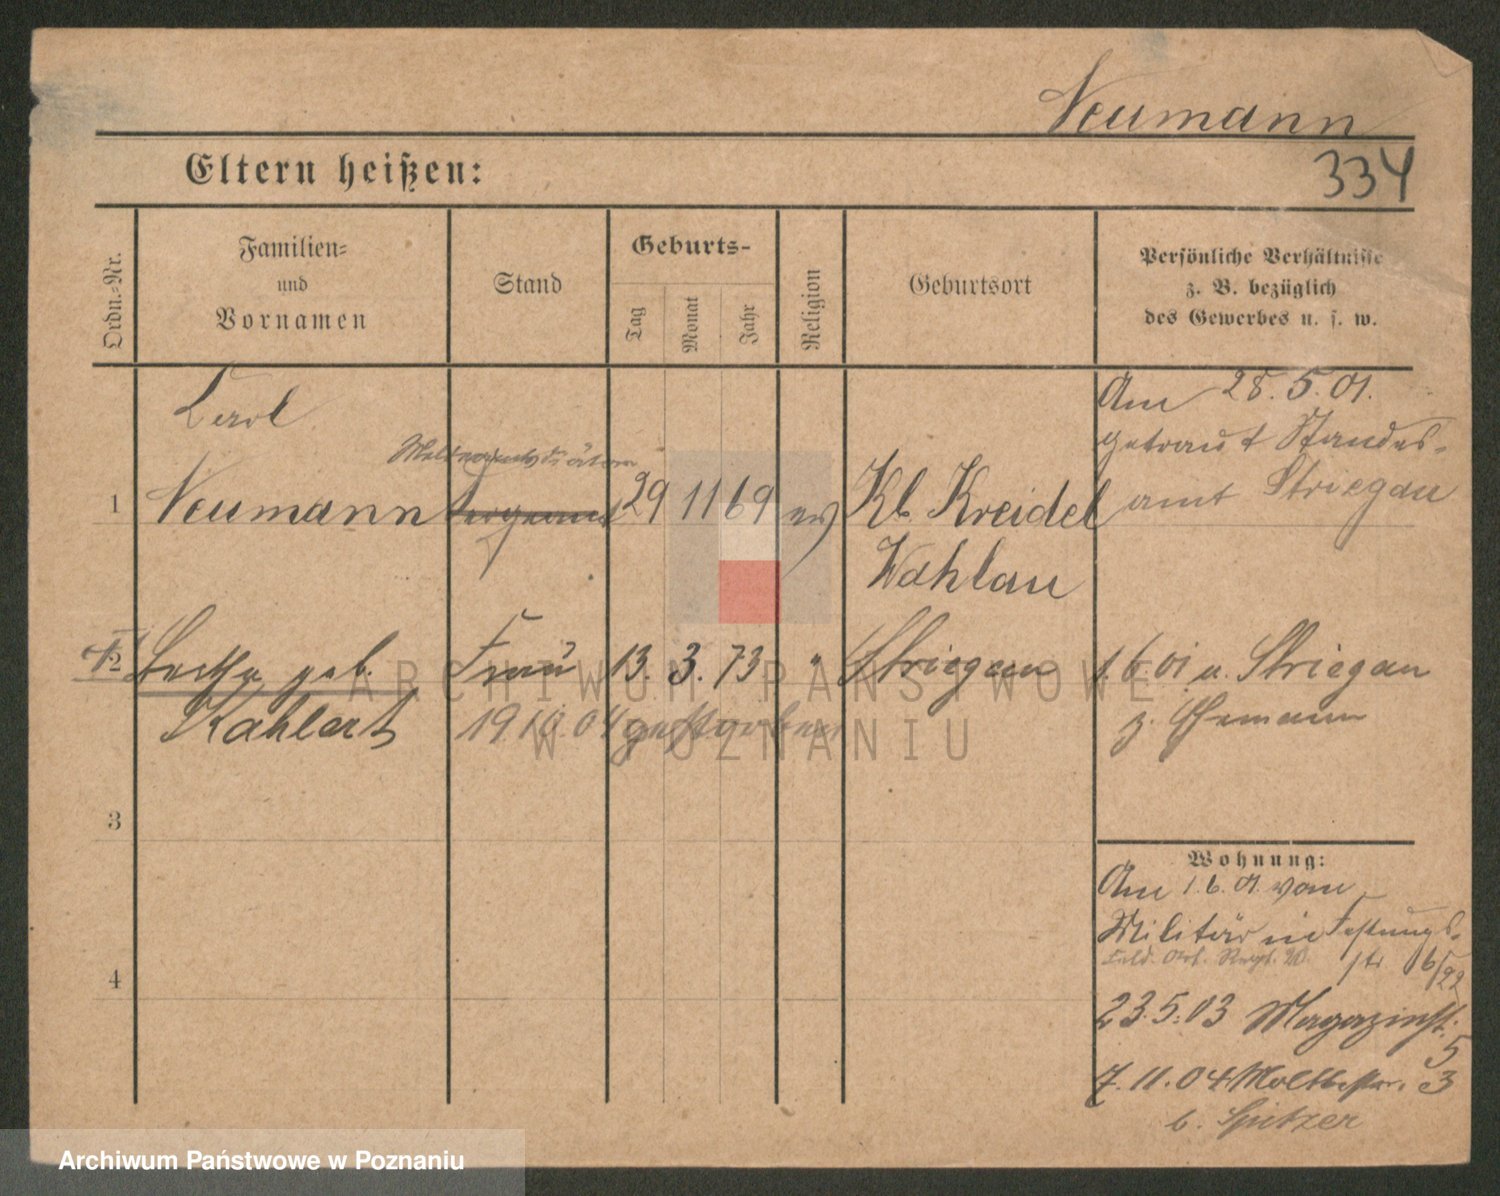 Neumann
334
Eltern heißen:
Ordn.-Nr.
Familien-
und
Vornamen
Stand
Geburts-
Tag
Monat
Jahr
Religion
Geburtsort
Persönliche Verhältnisse
z. B. bezüglich
des Gewerbes u. s. w.
Carl
1 Neumann Sergeant 29 11 69 ev Kl. Kreidel
Wohlau
Am 28.5.01.
getraut Standes-
amt Striegau
2 geb. Frau 13. 3. 73 " Striegau
Kahlert 19.10.04 gestorben
1.6.01 v. Striegau
z. Ehemann
3
4
Wohnung:
Am 1.6.01 vom
Militär in Festungs-
Feld. Art. Regt. 20. str 6/22
23.5.03 Magazinst. 5
7.11.04 Moltkestr. 3
b. Spitzer
ARCHIWUM PAŃSTWOWE
W POZNANIU
Archiwum Państwowe w Poznaniu